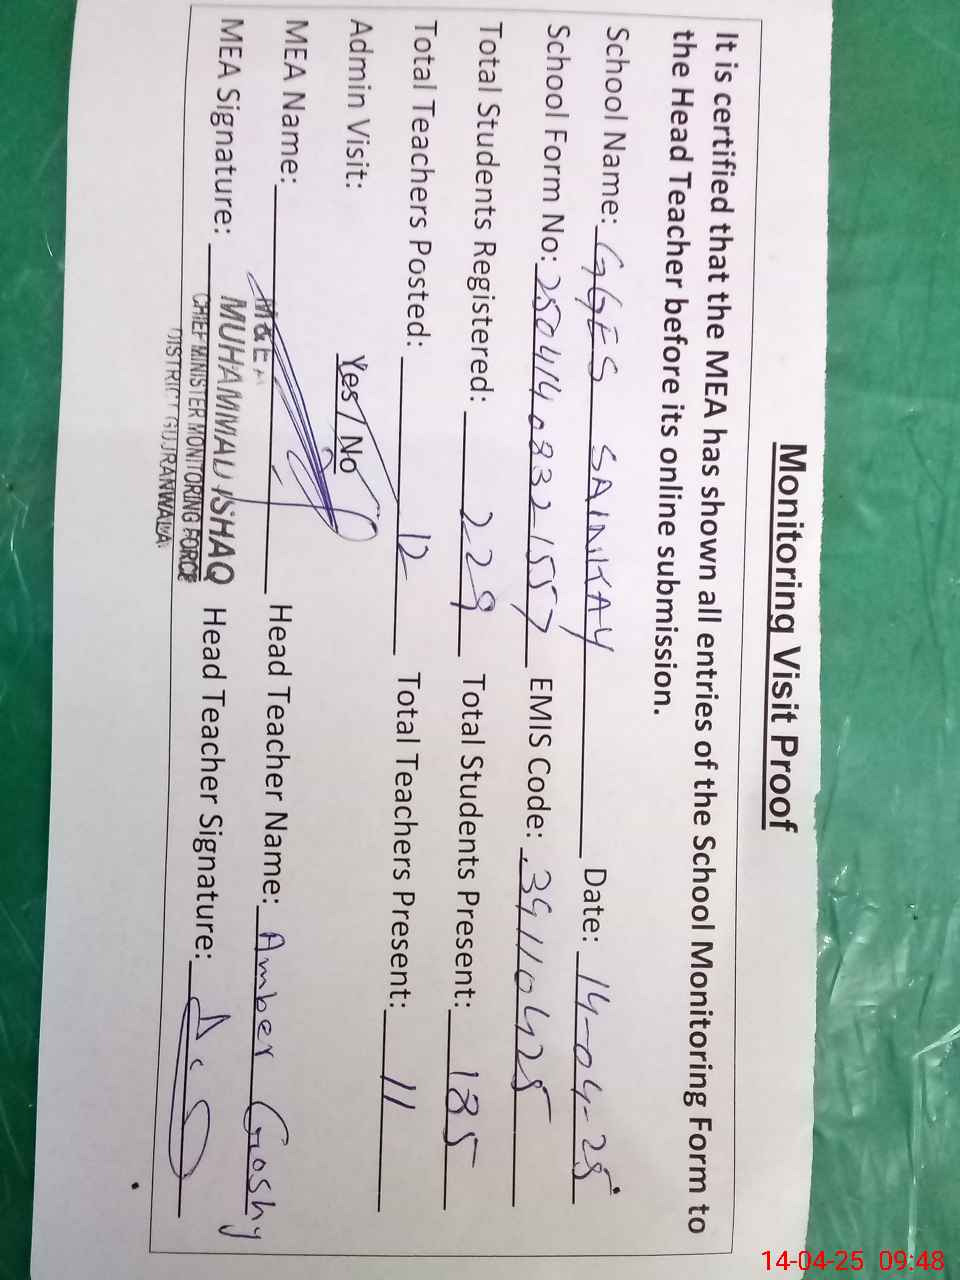 Monitoring Visit Proof
It is certified that the MEA has shown all entries of the School Monitoring Form to
the Head Teacher before its online submission.
School Name: GGES SAINKAY Date: 14-04-25
School Form No: 25041408321557 EMIS Code: 39110425
Total Students Registered: 229 Total Students Present: 185
Total Teachers Posted: 12 Total Teachers Present: 11
Admin Visit: Yes / No
MEA Name: Head Teacher Name: Amber Goshy
MEA Signature: MUHAMMAD ISHAQ Head Teacher Signature:
CHIEF MINISTER MONITORING FORCE
DISTRICT GUJRANWALA
14-04-25 09:48